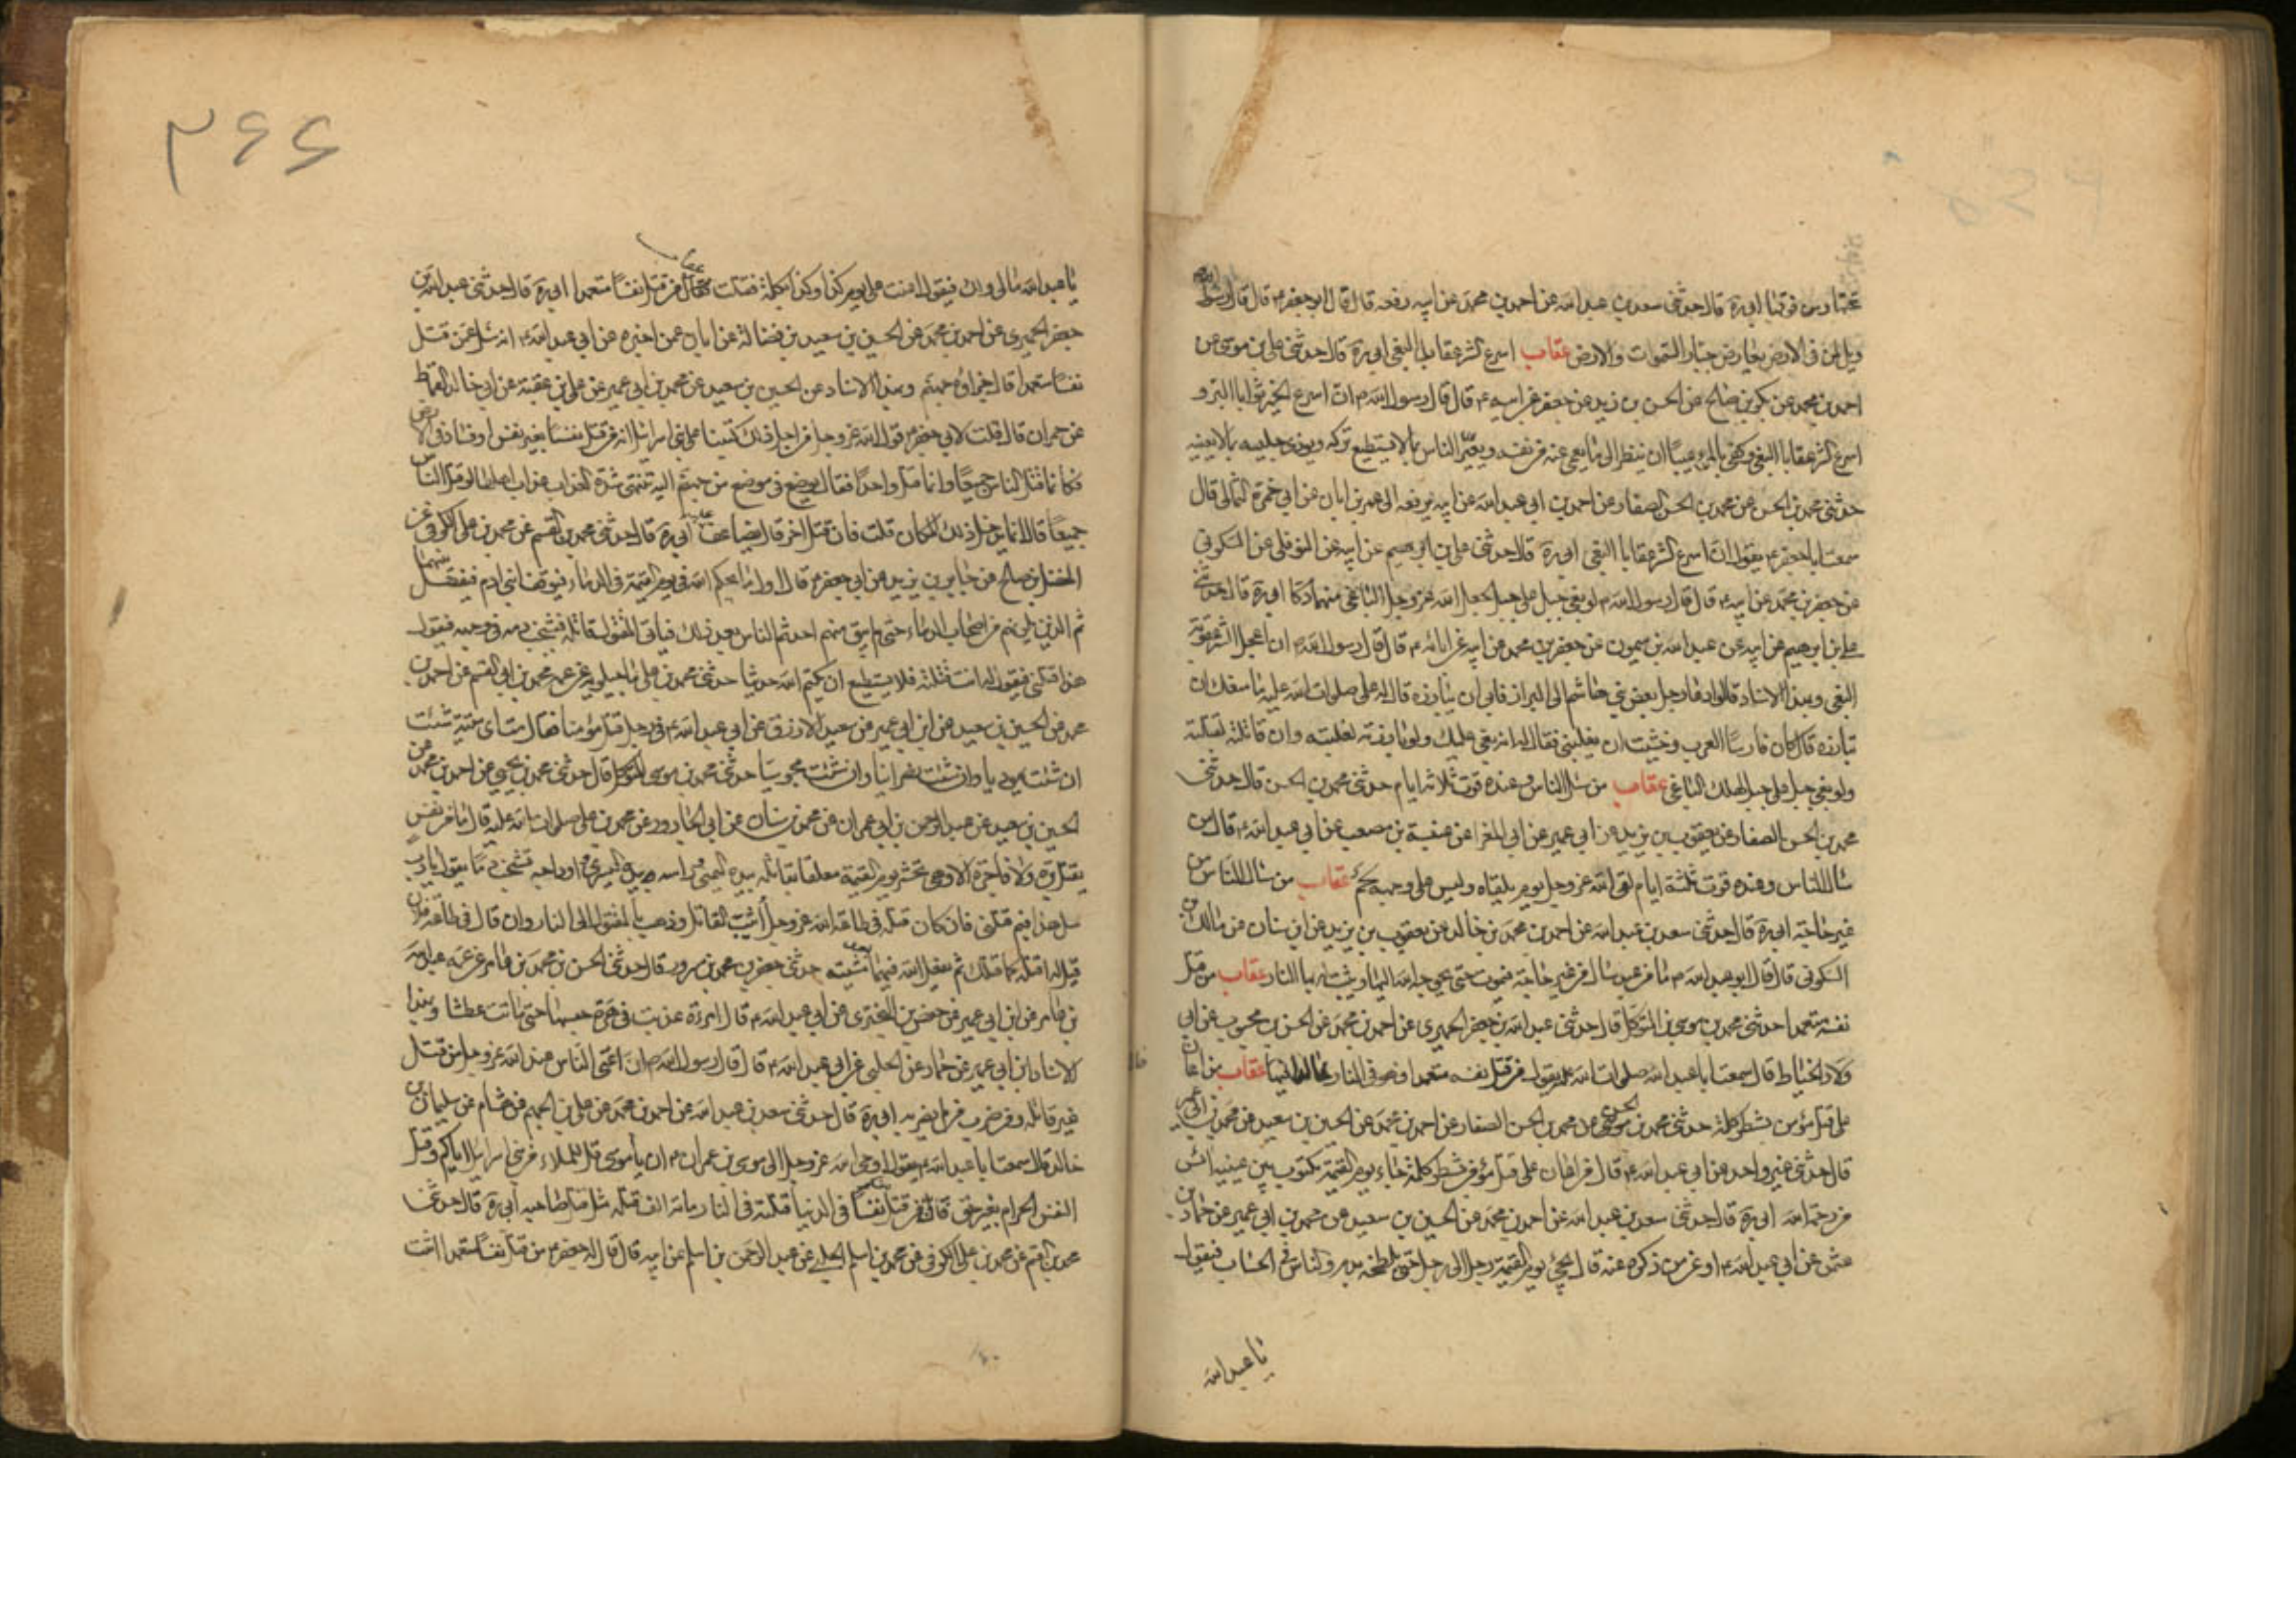 تختها ومن فوقها ابي ره قال حدثني سعد بن عبد الله عن احمد بن محمد عن ابيه رفعه قال قال ابو جعفر ع قال قال رسول الله ص
ويل لمن في الارض يعارض جبار السموات والارض عقاب اسرع الشر عقابا البغي ابي ره قال حدثني علي بن موسى عن
احمد بن محمد عن بكر بن صالح عن الحسن بن زيد عن جعفر عن ابيه ع قال قال رسول الله ص ان اسرع الخير ثوابا البر و
اسرع الشر عقابا البغي وكفى بالمرء عيبا ان ينظر الى ما يعمى عنه من نفسه ويعير الناس بما لا يستطيع تركه ويوذي جليسه بما لا يعنيه
حدثني محمد بن الحسن عن محمد بن الحسن الصفار عن احمد بن ابي عبد الله عن ابيه يرفعه الى عمر بن ابان عن ابي حمزة الثمالي قال
سمعت ابا جعفر ع يقول ان اسرع الشر عقابا البغي ابي ره قال حدثني علي بن ابرهيم عن ابيه عن النوفلي عن السكوني
عن جعفر بن محمد عن ابيه ع قال قال رسول الله ص لو بغى جبل على جبل لجعل الله عز وجل الباغي منهما دكا ابي ره قال حدثني
علي بن ابرهيم عن ابيه عن عبد الله بن ميمون عن جعفر بن محمد عن ابيه عن ابائه ع قال قال رسول الله ص ان اعجل الشر عقوبة
البغي وبهذا الاسناد قال دعا رجل بعض بني هاشم الى البراز فابى ان يبارزه قال له علي صلوات الله عليه ما منعك ان
تبارزه قال كان فارس العرب وخشيت ان يغلبني فقال له انه بغى عليك ولو بارزته لغلبته
ولو بغى جبل على جبل لهلك الباغي عقاب من سال الناس وعنده قوت ثلاثه ايام حدثني محمد بن الحسن قال حدثني
محمد بن الحسن الصفار عن يعقوب بن يزيد عن ابي عمير عن ابي المغرا عن عنبسة بن مصعب عن ابي عبد الله ع قال من
سال الناس وعنده قوت ثلثة ايام لقى الله عز وجل يوم يلقاه وليس على وجهه لحم عقاب من سال الناس من
غير حاجة ابي ره قال حدثني سعد بن عبد الله عن احمد بن محمد بن خالد عن يعقوب بن يزيد عن ابن سنان عن مالك بن
السكوني قال قال ابو عبد الله ع ما من عبد سال من غير حاجة فيموت حتى يحوجه الله اليها ويثبت له بها النار عقاب من قتل
نفسه متعمدا حدثني محمد بن موسى بن المتوكل قال حدثني عبد الله بن جعفر الحميري عن احمد بن محمد عن الحسن بن محبوب عن ابي
ولاد الخياط قال سمعت ابا عبد الله صلوات الله عليه يقول من قتل نفسه متعمدا فهو في النار خالدا فيها عقاب من اعان
على قتل مؤمن بشطر كلمة حدثني محمد بن الحسن عن محمد بن الحسن الصفار عن احمد بن محمد عن الحسين بن سعيد عن محمد بن ابي عمير
قال حدثني غير واحد عن ابي عبد الله ع قال من اعان على قتل مؤمن بشطر كلمة جاء يوم القيمة مكتوب بين عينيه آئس
من رحمة الله ابي ره قال حدثني سعد بن عبد الله عن احمد بن محمد عن الحسين بن سعيد عن محمد بن ابي عمير عن حماد بن
عثمن عن ابي عبد الله ع او عن من ذكره عنه قال يجئ يوم القيمة رجل الى رجل حتى يلطخه بدم والناس في الحساب فيقول
يا عبد الله
٣٦٦
يا عبد الله مالي ولك فيقول اعنت علي يوم كذا وكذا بكلمة فقتلت عقاب من قتل نفسا متعمدا ابي ره قال حدثني عبد الله بن
جعفر الحميري عن احمد بن محمد عن الحسين بن سعيد بن فضالة عن ابان عمن اخبره عن ابي عبد الله ع انه سئل عمن قتل
نفسا متعمدا قال جزاؤه جهنم وبهذا الاسناد عن الحسين بن سعيد عن محمد بن ابي عمير عن علي بن عقبة عن ابي خالد القماط
عن حمران قال قلت لابي جعفر ع قول الله عز وجل من اجل ذلك كتبنا على بني اسرائيل انه من قتل نفسا بغير نفس او فساد في الارض
فكانما قتل الناس جميعا وانما قتل واحدا فقال يوضع في موضع من جهنم اليه تنتهى شدة العذاب عذاب اهلها لو قتل الناس
جميعا قال انما يدخل ذلك المكان قلت فان قتل اخر قال يضاعف عليه ابي ره قال حدثني محمد بن القسم عن محمد بن علي الكوفي عن
المفضل بن صالح عن جابر بن يزيد عن ابي جعفر ع قال اول ما يحكم الله في يوم القيمة في الدماء فيوقف ابني ادم فيفصل بينهما
ثم الذين يلونهم من اصحاب الدماء حتى لم يبق منهم احد ثم الناس بعد ذلك فياتي المقتول قاتله فيشخب دمه في وجهه فيقول
هذا قتلني فيقول له انت قتلته فلا يستطيع ان يكتم الله حديثا حدثني محمد بن علي ماجيلويه عن عمه محمد بن ابي القسم عن احمد بن
محمد عن الحسين بن سعيد عن ابن ابي عمير عن سعيد الازرق عن ابي عبد الله ع في رجل قتل مؤمنا يقال له مت اي ميتة شئت
ان شئت يهوديا وان شئت نصرانيا وان شئت مجوسيا حدثني محمد بن موسى المتوكل قال حدثني محمد بن يحيى عن احمد بن محمد عن
الحسين بن سعيد عن عبد الرحمن بن ابي عمران عن محمد بن سنان عن ابي الجارود عن محمد بن علي صلوات الله عليه قال ما من نفس
يقتل برة ولا فاجرة الا وهي تحشر يوم القيمة معلقا بقاتله بيده اليمنى وراسه بيده اليسرى واوداجه تشخب دما يقول يا رب
سل هذا فيم قتلني فان كان قتله في طاعة الله عز وجل اثيب القاتل وذهب بالمقتول الى النار وان قال في طاعة فلان
قيل له اقتله كما قتلك ثم يفعل الله فيهما بعد مشيته حدثني جعفر بن محمد بن مسرور قال حدثني الحسين بن محمد بن عامر عن عمه عبد الله
بن عامر عن ابن ابي عمير عن حفص بن البختري عن ابي عبد الله ع قال امرءة عذبت في هرة حبسها حتى ماتت عطشا وبهذا
الاسناد ابن ابي عمير عن حماد عن الحلبي عن ابي عبد الله ع قال قال رسول الله ص ان اعتى الناس عند الله عز وجل من قتل
غير قاتله ومن ضرب من لم يضربه ابي ره قال حدثني سعد بن عبد الله عن احمد بن محمد عن علي بن الحكم عن هشام عن سليمان بن
خالد قال سمعت ابا عبد الله ع يقول اوحى الله عز وجل الى موسى بن عمران ع ان يا موسى قل للملاء من بني اسرائيل اياكم وقتل
النفس الحرام بغير حق فان من قتل نفسا في الدنيا قتلته في النار مائة الف قتلة مثل قتل صاحبه ابي ره قال حدثنا
محمد بن القسم عن محمد بن علي الكوفي عن محمد بن اسلم الجبلي عن عبد الرحمن بن اسلم عن ابيه قال قال ابو جعفر ع من قتل نفسا متعمدا اثبت